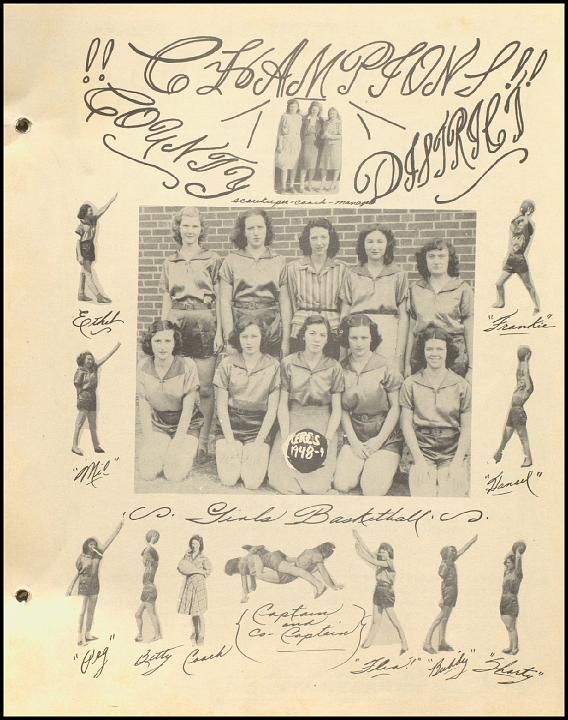 !! CHAMPIONS!!!
COUNTY DISTRICT
scorekeeper-coach-manager
Ethel
"Frankie"
"Mil"
"Hansel"
1948-9
Girls Basketball
"Peg"
Betty
Coach
Captain
and
Co-Captain
"Flea!"
"Buddy"
"Shorty"